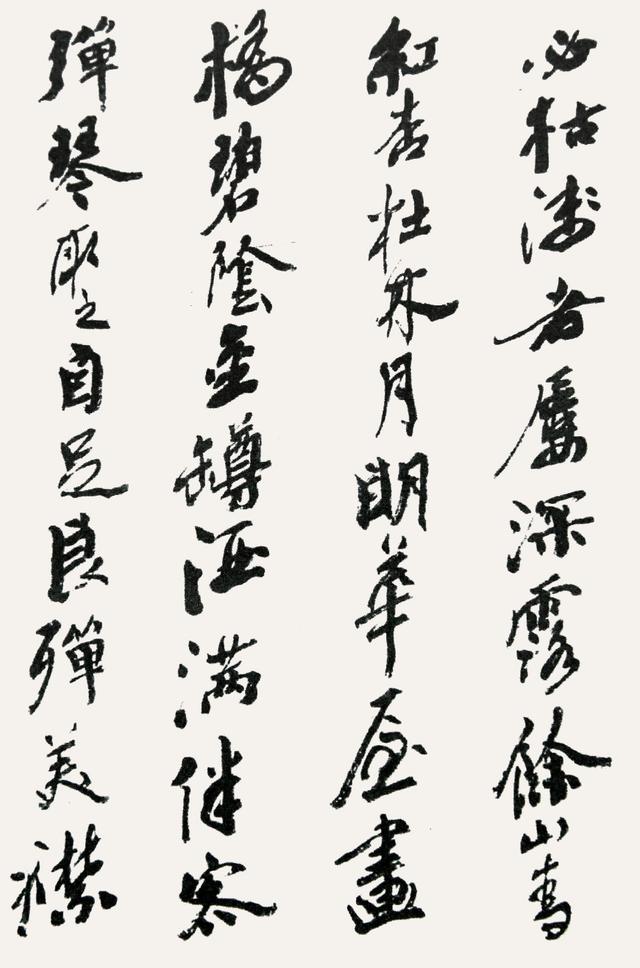 必枯淺者屢深露餘山青
紅杏在林月明華屋畫
橋碧陰金罇酒滿伴客
彈琴取之自足良殫美襟